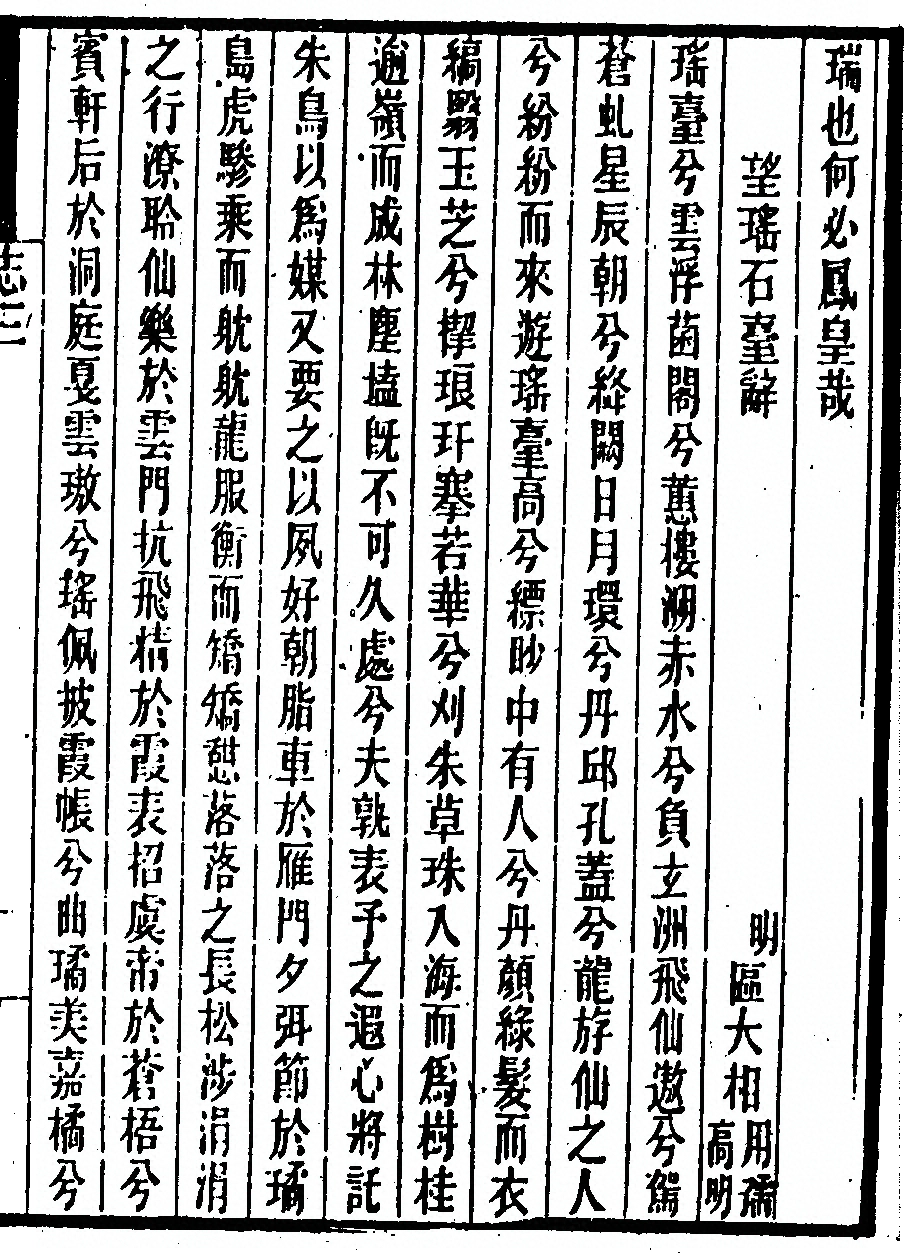 瑞也何必鳳皇哉
望瑤石臺辭
明區大相用孺高明
瑤臺兮雲浮菌閣兮蕙樓溯赤水兮負玄洲飛仙遨兮駕
蒼虬星辰朝兮絳闕日月環兮丹邱孔蓋兮龍斿仙之人
兮紛紛而來遊瑤臺高兮縹眇中有人兮丹顏綠髮而衣
縞翳玉芝兮樨琅玕搴若華兮刈朱草珠入海而為樹桂
逾嶺而成林塵壒既不可久處兮夫孰表予之遐心將託
朱鳥以為媒又要之以夙好朝脂車於雁門夕弭節於璚
島虎驂乘而躭躭龍服衡而矯矯憇落落之長松涉涓涓
之行潦聆仙樂於雲門抗飛精於霞表招虞帝於蒼梧兮
賓軒后於洞庭戛雲璈兮瑤佩披霞帳兮曲璚羙嘉橘兮
志二